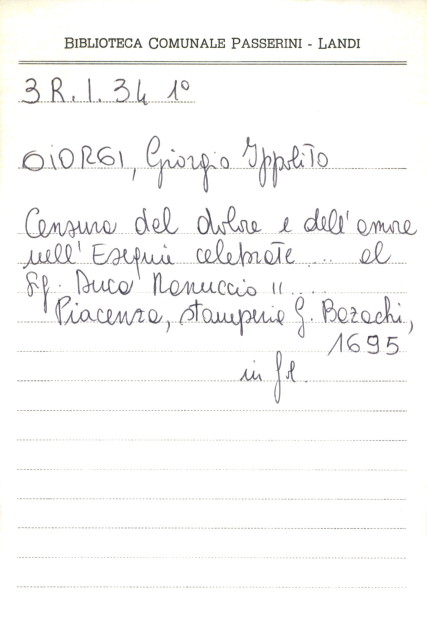 BIBLIOTECA COMUNALE PASSERINI - LANDI
3 R. I. 34 1°
GIORGI, Giorgio Ippolito
Censura del dolore e dell'amore
nell'Esequie celebrate ... al
Sg. Duca Ranuccio II ....
Piacenza, stamperia G. Bazachi,
1695
in fol.